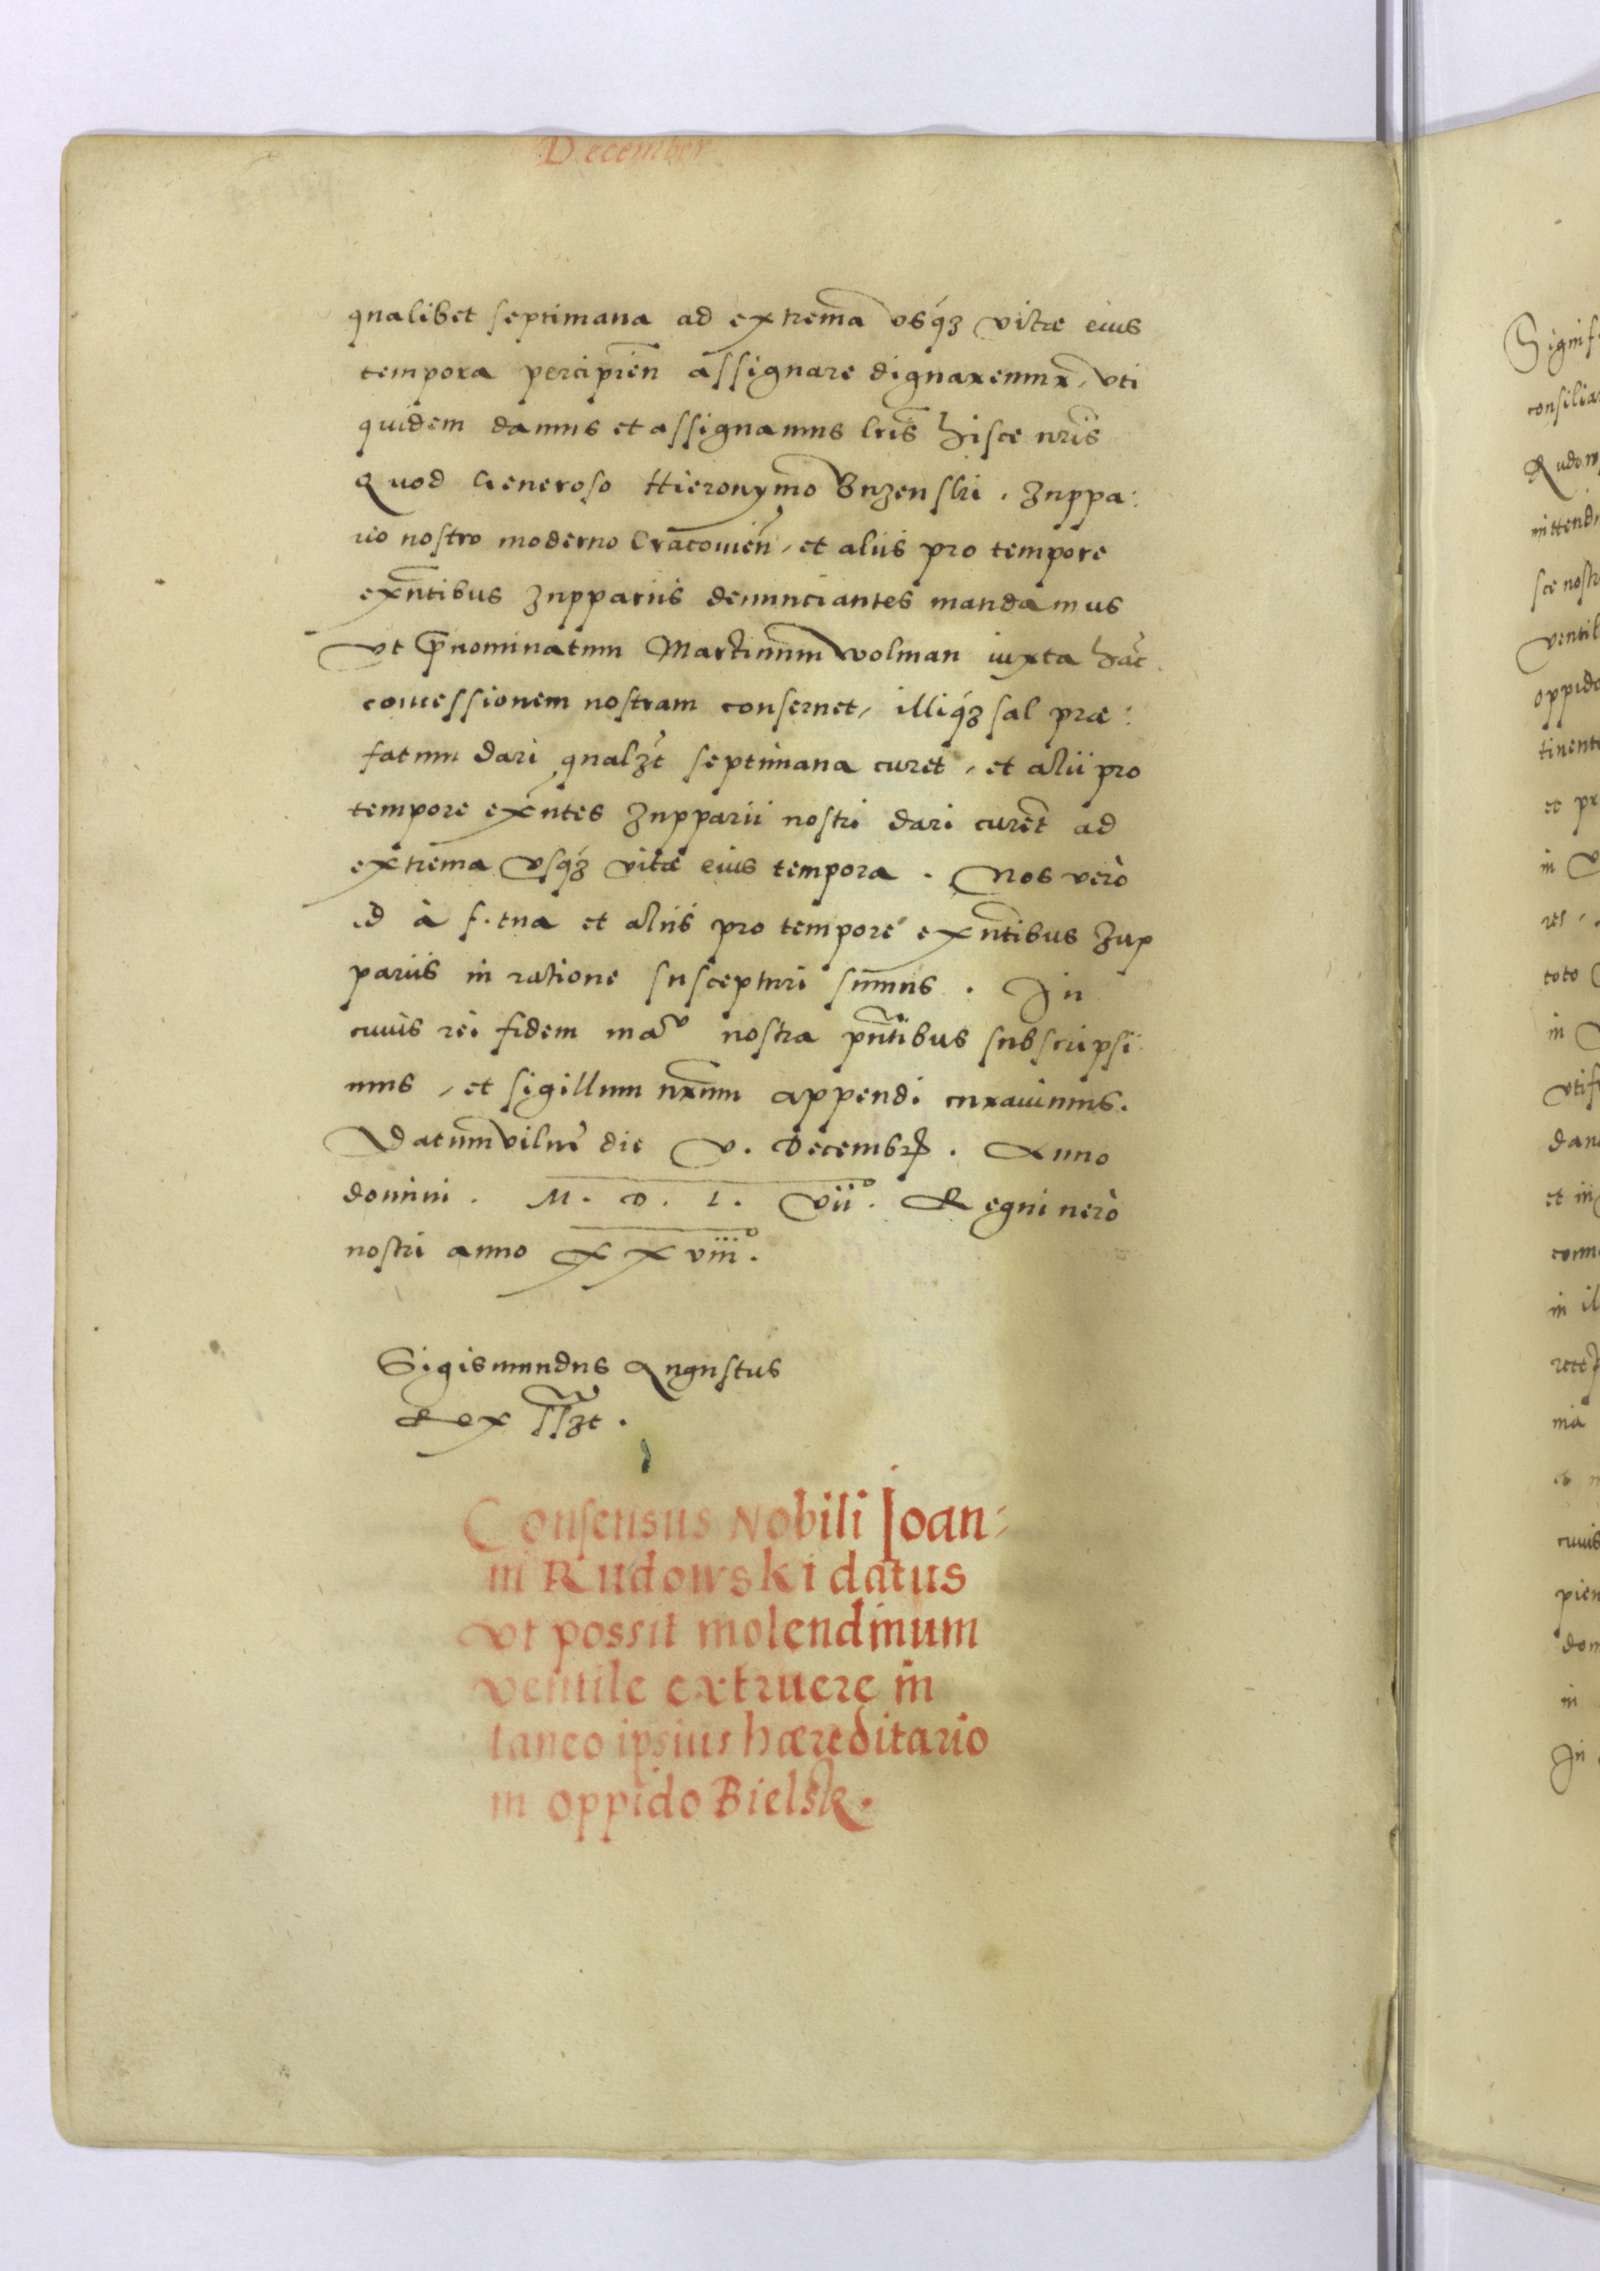 December
qualibet septimana ad extrema usq́ꝫ vitæ eius
tempora percipień assignare dignaremur, vti
quidem damus et assignamus lris̃ hisce nris̃
Quod Generoso Hieronymo Buzenski. Zuppa:
rio nostro moderno Cracovień, et aliis pro tempore
exñtibus Zuppariis denunciantes mandamus
Vt p̃nominatum Martinum Wolman iuxta hác
concessionem nostram conservet, illiq́ꝫ sal præ:
fatum dari qualꝫt septimana curet, et alii pro
tempore exñtes Zupparii nostri dari curẽt ad
extrema usq́ꝫ vitæ eius tempora. Nos verò
id à f. tua et aliis pro tempore exñtibus Zup
pariis in ratione suscepturi sumus. In
cuius rei fidem nostra pñtibus subscripsi:
mus, et sigillum nrum̃ appendi curavimus.
Datum Vilnẽ die V. Decembrꝭ. Anno
domini. M. D. L. Vii°. Regni verò
nostri anno XXViii°.
Sigismundus Augustus
Rex s̃sꝫt.
Consensus Nobili Joan-
ni Rudowski datus
vt possit molendinum
ventile extruere in
laneo ipsius hæreditario
in oppido Bielsk.
Signif
consilia
Rudow
mittend
sce nostr
ventil
oppido
tinent
et pr
in
res
toto
in
vtif
dan
et in
comm
in il
rect
mia
cuius
pien
dom
in
In